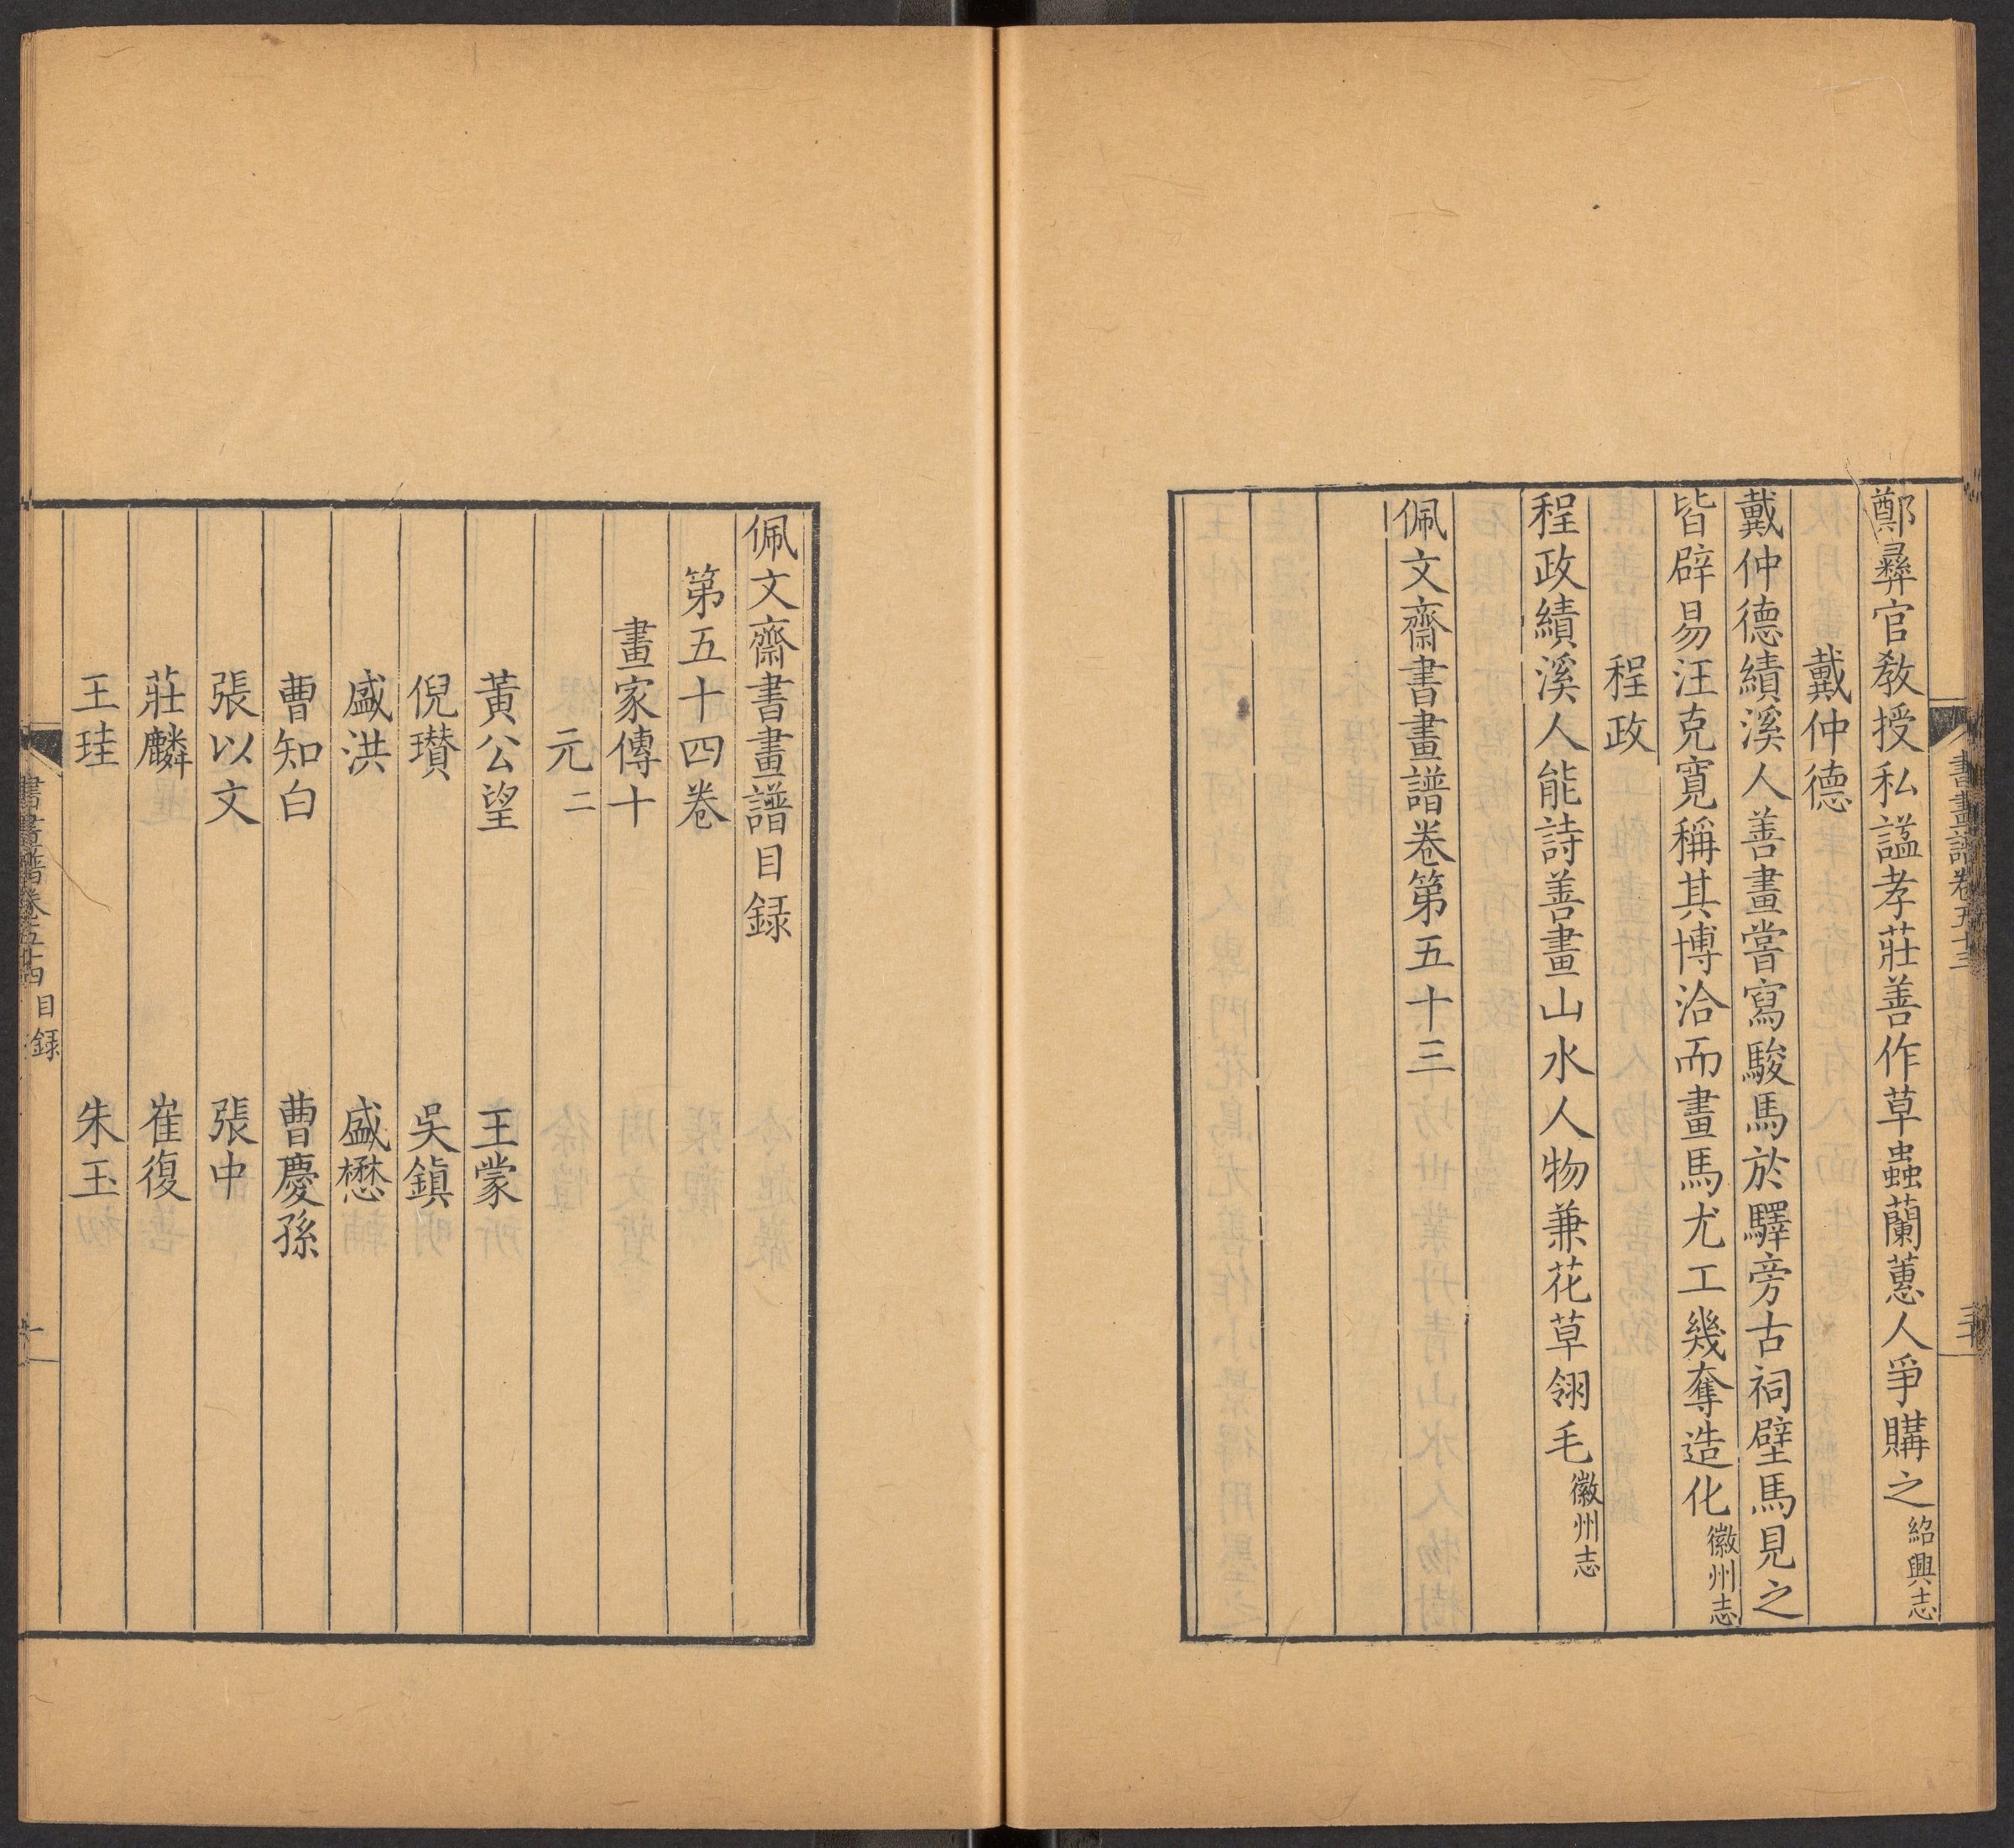 鄭彝官教授私謚孝莊善作草蟲蘭蕙人爭購之紹興志
戴仲德
戴仲德績溪人善畫嘗寫駿馬於驛旁古祠壁馬見之
皆辟易汪克寬稱其博洽而畫馬尤工幾奪造化徽州志
程政
程政績溪人能詩善畫山水人物兼花草翎毛徽州志
佩文齋書畫譜卷第五十三
書畫譜卷五十三
佩文齋書畫譜目録
第五十四卷
畫家傳十
元二
黃公望 王蒙
倪瓚 吳鎮
盛洪 盛懋
曹知白 曹慶孫
張以文 張中
莊麟 崔復
王珪 朱玉
書畫譜卷五十四 目録 一